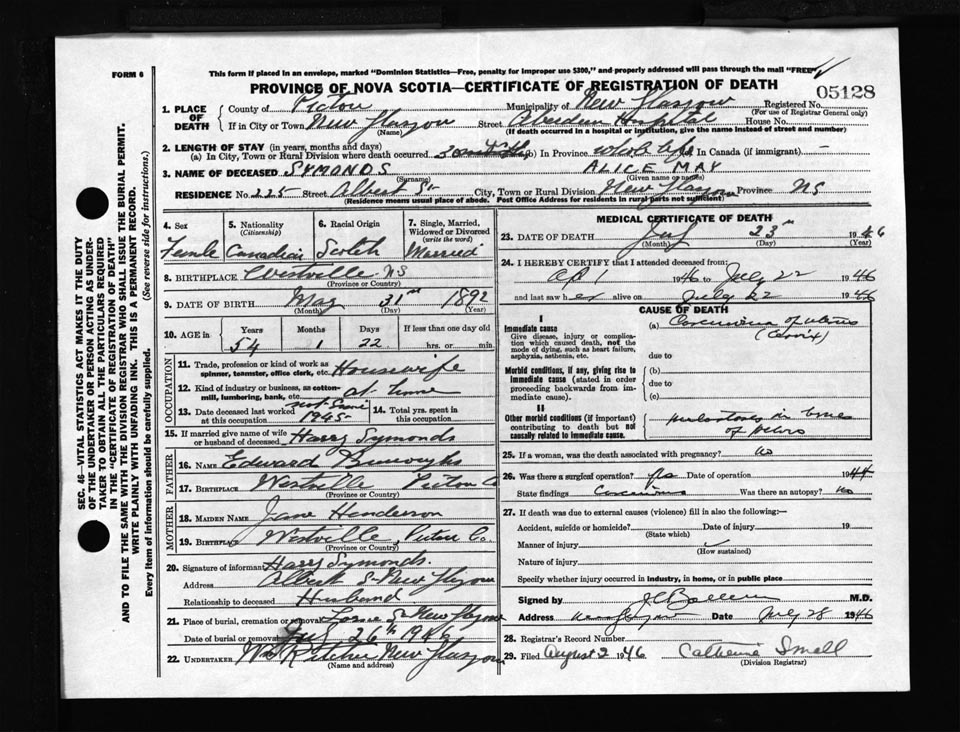 FORM 6
This form if placed in an envelope, marked "Dominion Statistics—Free, penalty for improper use $300," and properly addressed will pass through the mail "FREE"
PROVINCE OF NOVA SCOTIA—CERTIFICATE OF REGISTRATION OF DEATH
05128
1. PLACE OF DEATH
County of Pictou Municipality of New Glasgow Registered No.
(For use of Registrar General only)
If in City or Town New Glasgow Street Aberdeen Hospital House No.
(Name) (If death occurred in a hospital or institution, give the name instead of street and number)
2. LENGTH OF STAY (in years, months and days)
(a) In City, Town or Rural Division where death occurred (b) In Province whole life (c) In Canada (if immigrant) —
3. NAME OF DECEASED SYMONDS ALICE MAY
(Surname) (Given name or names)
RESIDENCE No. 225 Street Albert St City, Town or Rural Division New Glasgow Province NS
(Residence means usual place of abode. Post Office Address for residents in rural parts not sufficient)
4. Sex 5. Nationality (Citizenship) 6. Racial Origin 7. Single, Married, Widowed or Divorced (write the word)
Female Canadian Scotch Married
8. BIRTHPLACE Westville NS
(Province or Country)
9. DATE OF BIRTH May 31st 1892
(Month) (Day) (Year)
10. AGE in Years Months Days If less than one day old
54 1 22 hrs. or min.
OCCUPATION
11. Trade, profession or kind of work as spinner, teamster, office clerk, etc. Housewife
12. Kind of industry or business, as cotton-mill, lumbering, bank, etc. at home
13. Date deceased last worked at this occupation 1945 14. Total yrs. spent in this occupation
15. If married give name of wife or husband of deceased Harry Symonds
FATHER
16. NAME Edward Burroughs
17. BIRTHPLACE Westville Pictou Co
(Province or Country)
MOTHER
18. MAIDEN NAME Jane Henderson
19. BIRTHPLACE Westville, Pictou Co.
(Province or Country)
20. Signature of informant Harry Symonds.
Address Albert St New Glasgow
Relationship to deceased Husband
21. Place of burial, cremation or removal Lorne St New Glasgow
Date of burial or removal July 26th 1946
22. UNDERTAKER Wm Ritchie New Glasgow
(Name and address)
MEDICAL CERTIFICATE OF DEATH
23. DATE OF DEATH July 23rd 1946
(Month) (Day) (Year)
24. I HEREBY CERTIFY that I attended deceased from:
Apl 1946 to July 22 1946
and last saw her alive on July 22 1946
CAUSE OF DEATH
I
Immediate cause
Give disease, injury or complication which caused death, not the mode of dying, such as heart failure, asphyxia, asthenia, etc.
(a) Carcinoma of uterus (Cervix)
due to
Morbid conditions, if any, giving rise to immediate cause (stated in order proceeding backwards from immediate cause).
(b)
due to
(c)
II
Other morbid conditions (if important) contributing to death but not causally related to immediate cause.
metastases in bones of pelvis
25. If a woman, was the death associated with pregnancy? no
26. Was there a surgical operation? yes Date of operation 1944
State findings Carcinoma Was there an autopsy? No
27. If death was due to external causes (violence) fill in also the following:—
Accident, suicide or homicide? Date of injury 19
(State which)
Manner of injury
(How sustained)
Nature of injury
Specify whether injury occurred in industry, in home, or in public place
Signed by M.D.
Address New Glasgow Date July 28 1946
28. Registrar's Record Number
29. Filed August 2 1946 Catherine Small
(Division Registrar)
SEC. 46—VITAL STATISTICS ACT MAKES IT THE DUTY
OF THE UNDERTAKER OR PERSON ACTING AS UNDER-
TAKER TO OBTAIN ALL THE PARTICULARS REQUIRED
IN THE "CERTIFICATE OF REGISTRATION OF DEATH"
AND TO FILE THE SAME WITH THE DIVISION REGISTRAR WHO SHALL ISSUE THE BURIAL PERMIT.
WRITE PLAINLY WITH UNFADING INK. THIS IS A PERMANENT RECORD.
Every item of information should be carefully supplied. (See reverse side for instructions.)